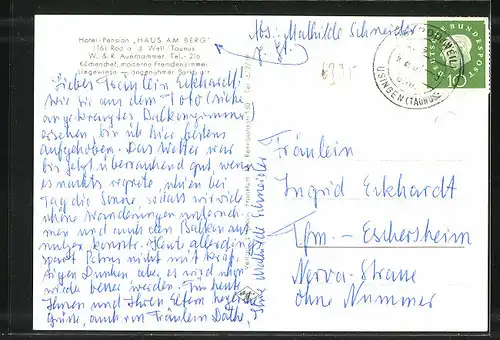 Hotel-Pension „HAUS AM BERG"
(16) Rod a. d. Weil/Taunus
W. & R. Auernhammer, Tel.: 216
Küchenchef, moderne Fremdenzimmer
Liegewiese — angenehmer
Abs: Mathilde Schneider
z. Zt.
Liebes Fräulein Eckhardt!
Wie Sie aus dem Foto (siehe
angekreuztes Balkonzimmer)
ersehen, bin ich hier bestens
aufgehoben. Das Wetter war
bis jetzt überraschend gut, wenn
es nachts regnete, schien bei
Tag die Sonne, sodass wir viele
schöne Wanderungen unterneh-
men und auch den Balkon aus-
nutzen konnte. Heute allerdings
spart Petrus nicht mit kräf-
tigen Duschen, aber es wird schon
wieder besser werden. Für heute
Ihnen und Ihren Eltern herzliche
Grüße, auch von Fräulein Däthe,
Ihre Mathilde Schneider
DEUTSCHE BUNDESPOST
10
USINGEN (TAUNUS)
Fräulein
Ingrid Eckhardt
Ffm.-Eschersheim
Nerva-Strasse
ohne Nummer